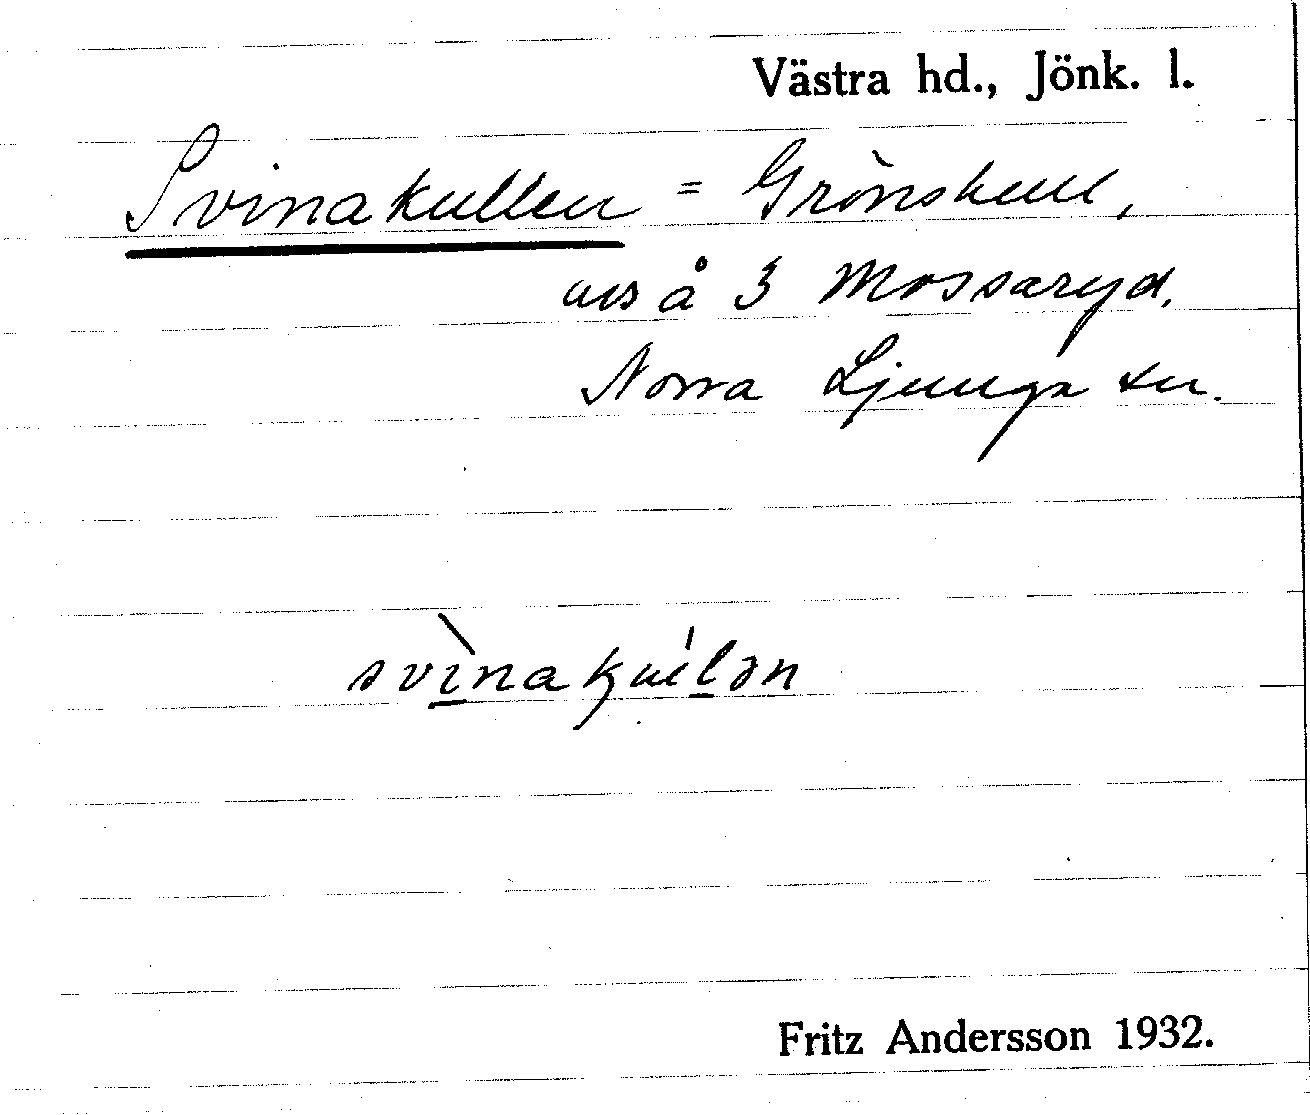 Västra hd., Jönk. l.
Svinakullen = Grönskull,
avs å 3 Mossaryd.
Norra Ljunga sn.
svìnakúlən
Fritz Andersson 1932.